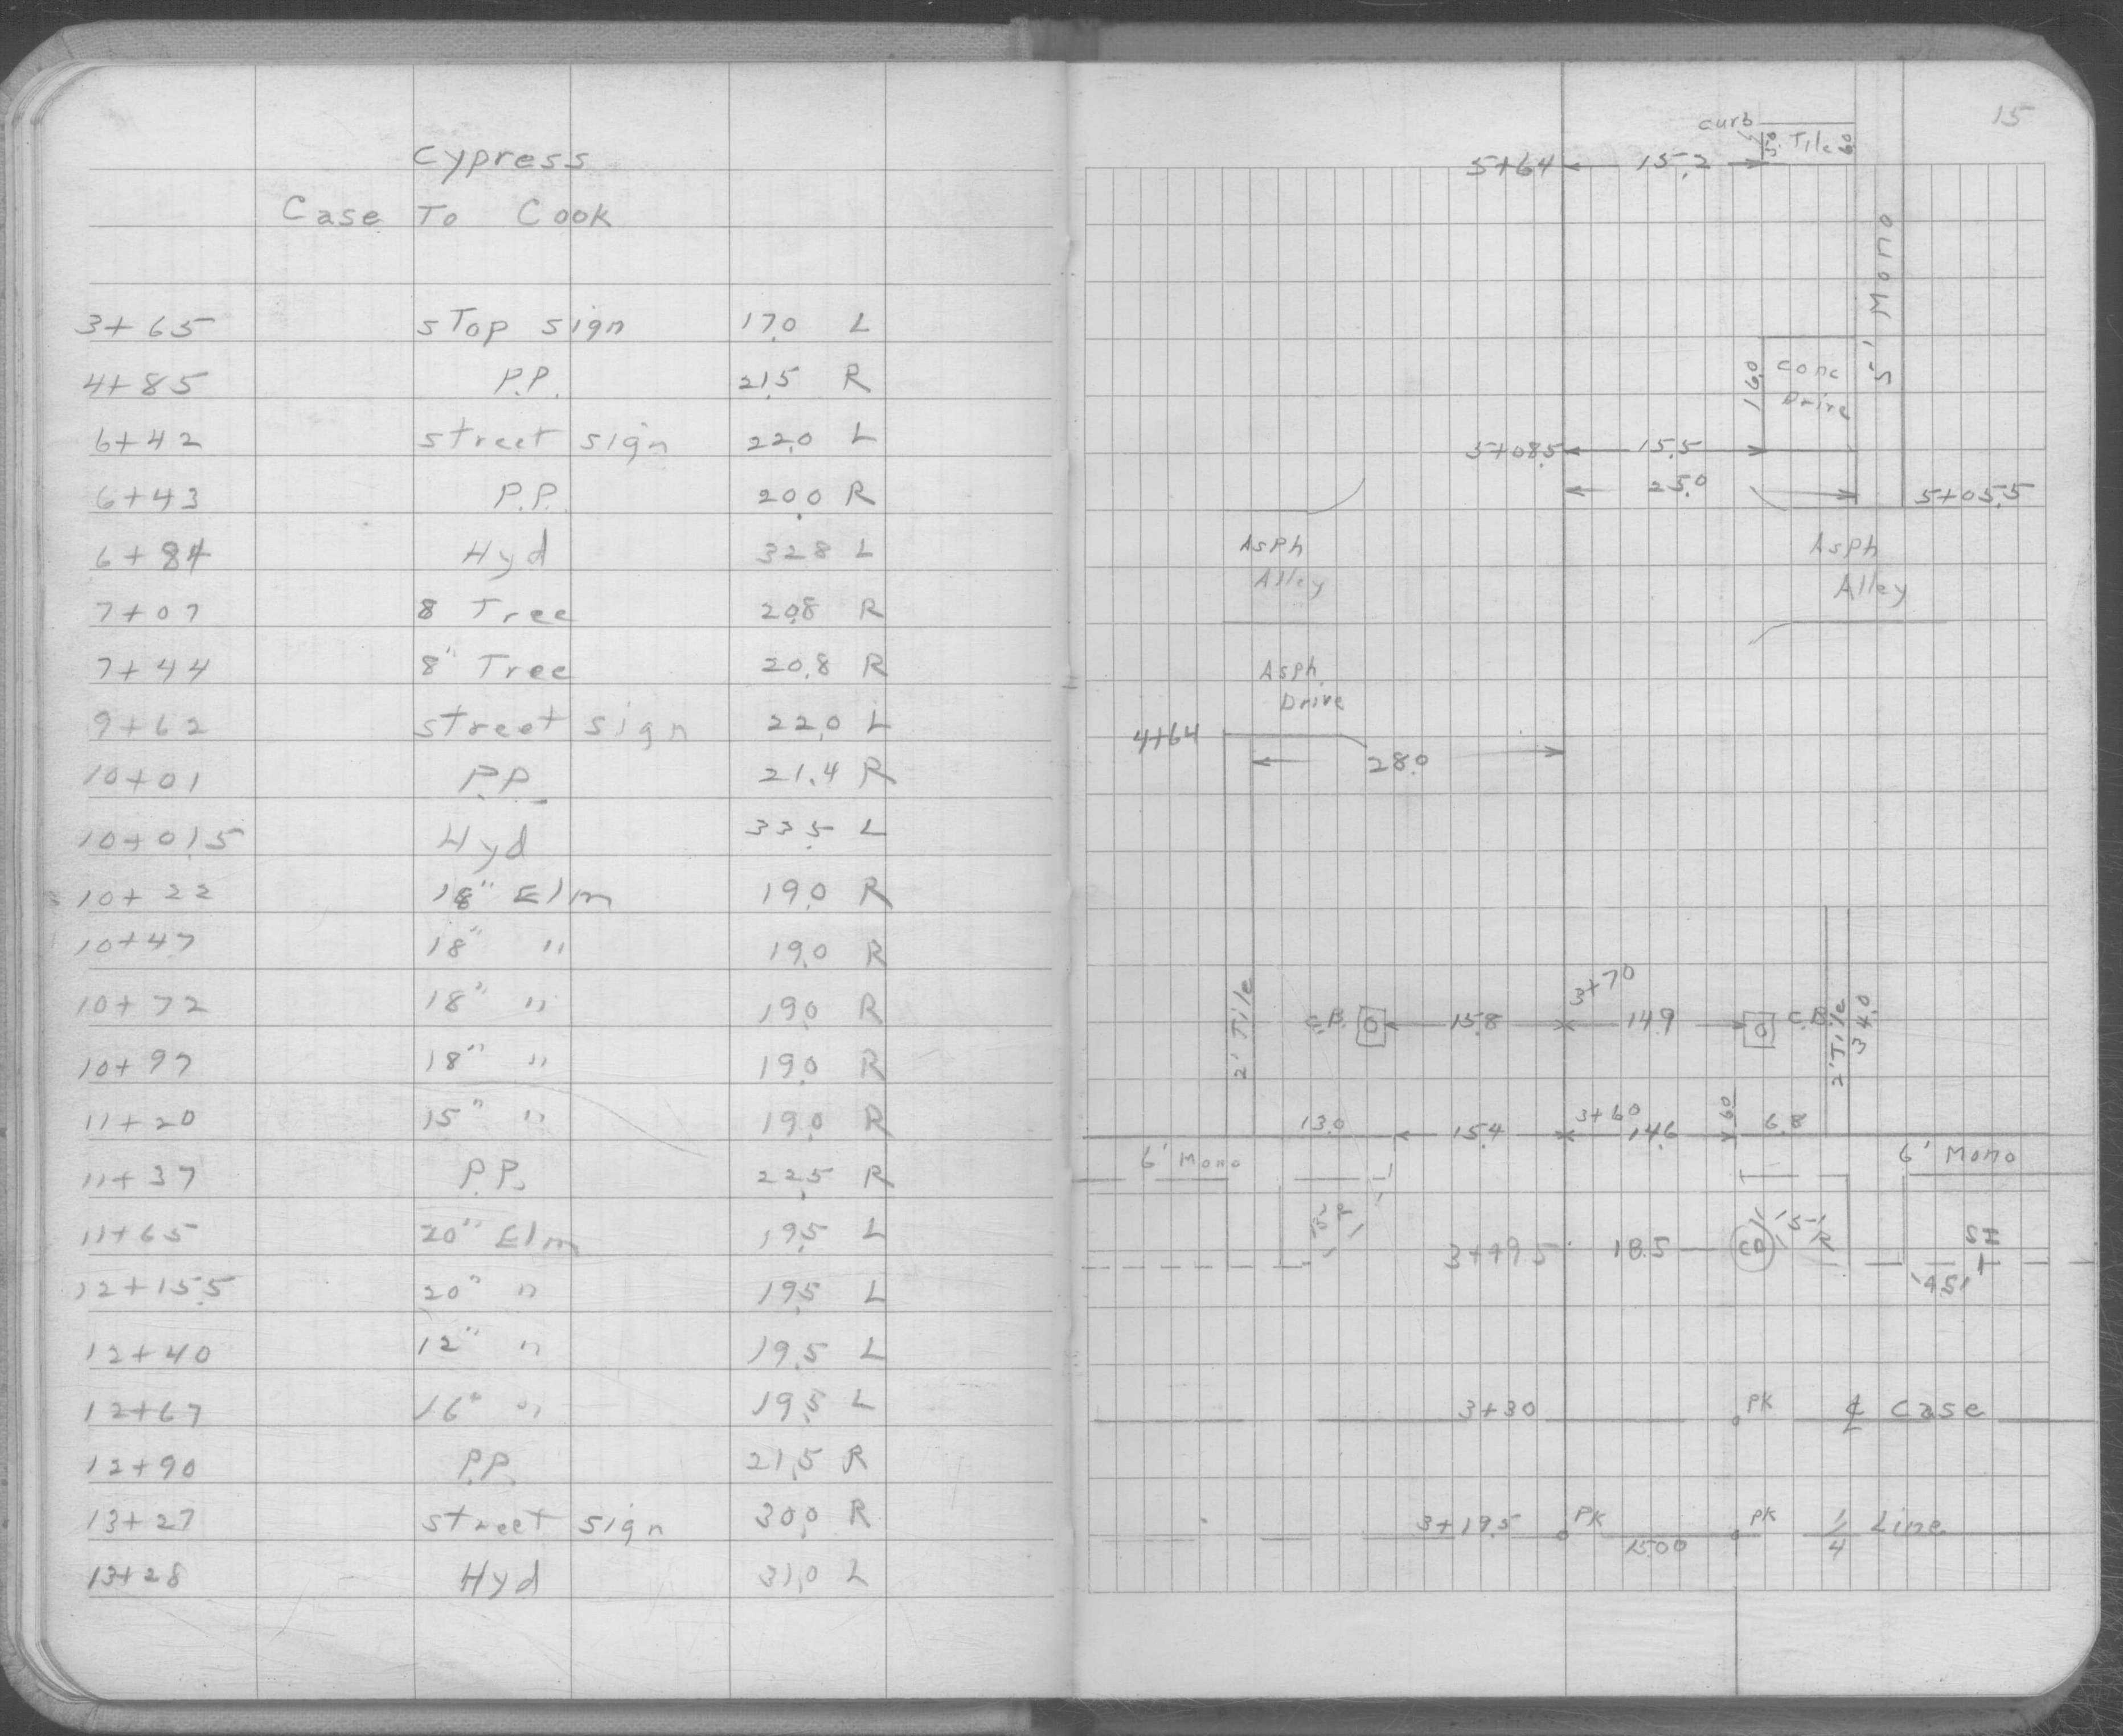 Cypress
Case To Cook
3+65 stop sign 17.0 L
4+85 P.P. 21.5 R
6+42 street sign 22.0 L
6+43 P.P. 20.0 R
6+84 Hyd 32.8 L
7+07 8 Tree 20.8 R
7+44 8" Tree 20.8 R
9+62 street sign 22.0 L
10+01 P.P. 21.4 R
10+01.5 Hyd 33.5 L
10+22 18" Elm 19.0 R
10+47 18" " 19.0 R
10+72 18" " 19.0 R
10+97 18" " 19.0 R
11+20 15" " 19.0 R
11+37 P.P. 22.5 R
11+65 20" Elm 19.5 L
12+15.5 20" " 19.5 L
12+40 12" " 19.5 L
12+67 16" " 19.5 L
12+90 P.P. 21.5 R
13+27 street sign 30.0 R
13+28 Hyd 31.0 L
15
curb
5.0 Tile 6.0
5+64 15.2
5' Mono
16.0 conc
Drive
5+08.5 15.5
25.0 5+05.5
Asph Asph
Alley Alley
Asph.
Drive
4+64
28.0
3+70
2' Tile C.B. 15.8 14.9 C.B. 2' Tile 34.0
13.0 15.4 3+60 14.6 6.0 6.8
6' Mono 6' Mono
3+49.5 18.5 CB 15' R
HS
4.5
3+30 PK ℄ Case
3+19.5 PK 15.00 PK 1/4 Line